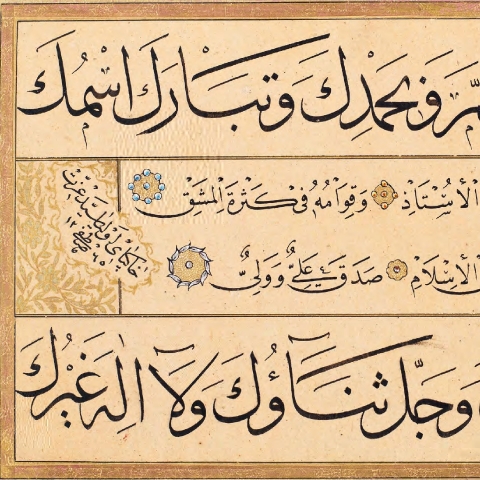 وَبِحَمْدِكَ وَتَبَارَكَ اسْمُكَ
الْأُسْتَاذِ وَقِوَامُهُ فِي كَثْرَةِ الْمَشْقِ
الْإِسْلَامِ صَدَقَ عَلِيٌّ وَوَلِيٌّ
وَجَلَّ ثَنَاؤُكَ وَلَا إِلٰهَ غَيْرُكَ